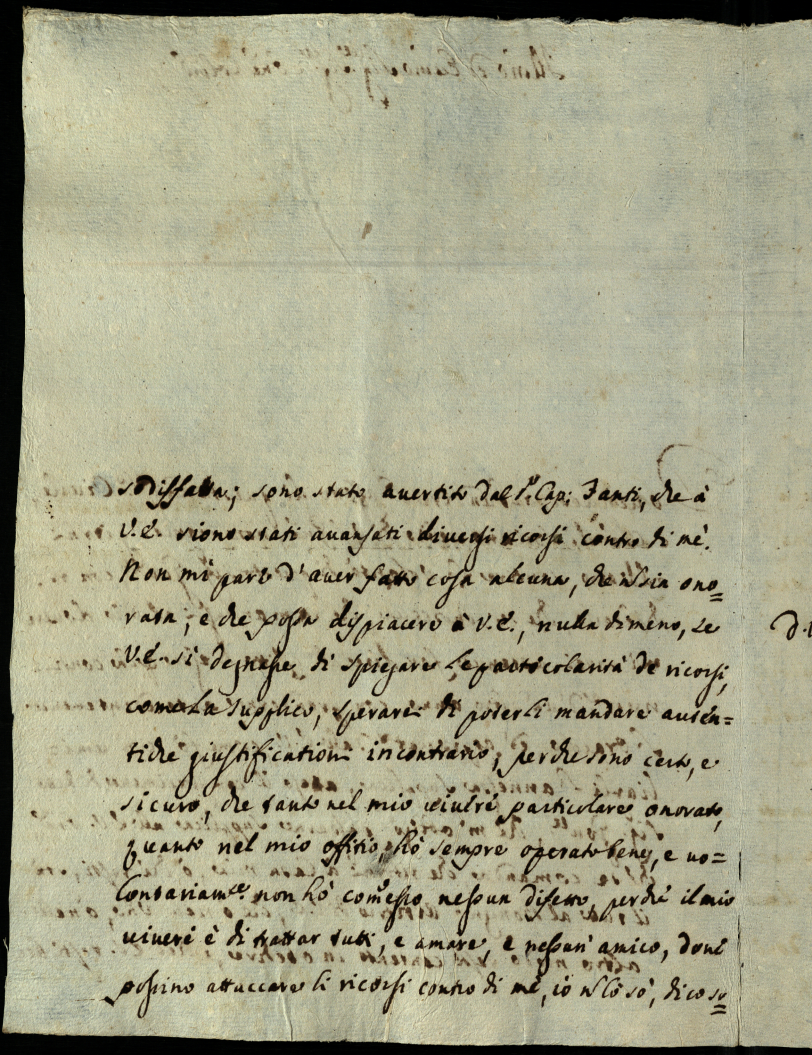 sodisfatta; sono stato avertito dal Sr. Cap: Fanti, che à
V.E. siono stati avansati diversi ricorsi contro di mè.
Non mi pare d'aver fatto cosa alcuna, che nò sia ono=
rata, e che possa dispiacere à V.E., nulla dimeno, se
V.E. si degnasse di spiegare le particolarità de ricorsi,
come La supplico, sperarei di poterli mandare auten=
tiche giustificationi incontrario, perche sono certo, e
sicuro, che tanto nel mio vivere particolare onorato,
quanto nel mio offitio, hò sempre operato bene, e vo=
lontariamte. non hò comesso nessun difetto, perche il mio
vivere è di trattar tutti, e amare, e nessun' amico, dove
possino attaccare li ricorsi contro di mè, iò nò lò sò, dico so=